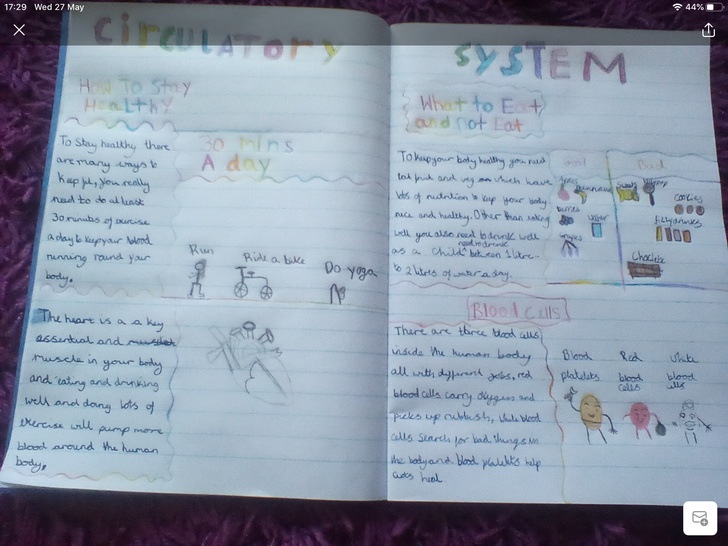 17:29 Wed 27 May
44%
CIRCULATORY
SYSTEM
How To Stay
Healthy
To stay healthy there
are many ways to
keep it, you really
need to do at least
30 minutes of exercise
a day to keep your blood
running round your
body.
30 mins
A day
Run
Ride a bike
Do yoga
The heart is a a key
essential and muscle
muscle in your body
and eating and drinking
well and doing lots of
exercise will pump more
blood around the human
body.
What to Eat
and not Eat
To keep your body healthy you need
eat fruit and veg which have
lots of nutrition to keep your body
nice and healthy. Other than eating
well you also need to drink well
need to drink
as a child between 1 litre
to 2 litres of water a day.
Bad
Berries
Water
Grapes
Sweets
Cookies
Fizzy drinks
Choclate
Blood Cells
There are three blood cells
inside the human body
all with different jobs, red
blood cells carry oxygen and
picks up rubbish, white blood
cells search for bad things in
the body and blood platelets help
cuts heal
Blood
platelets
Red
blood
cells
White
blood
cells